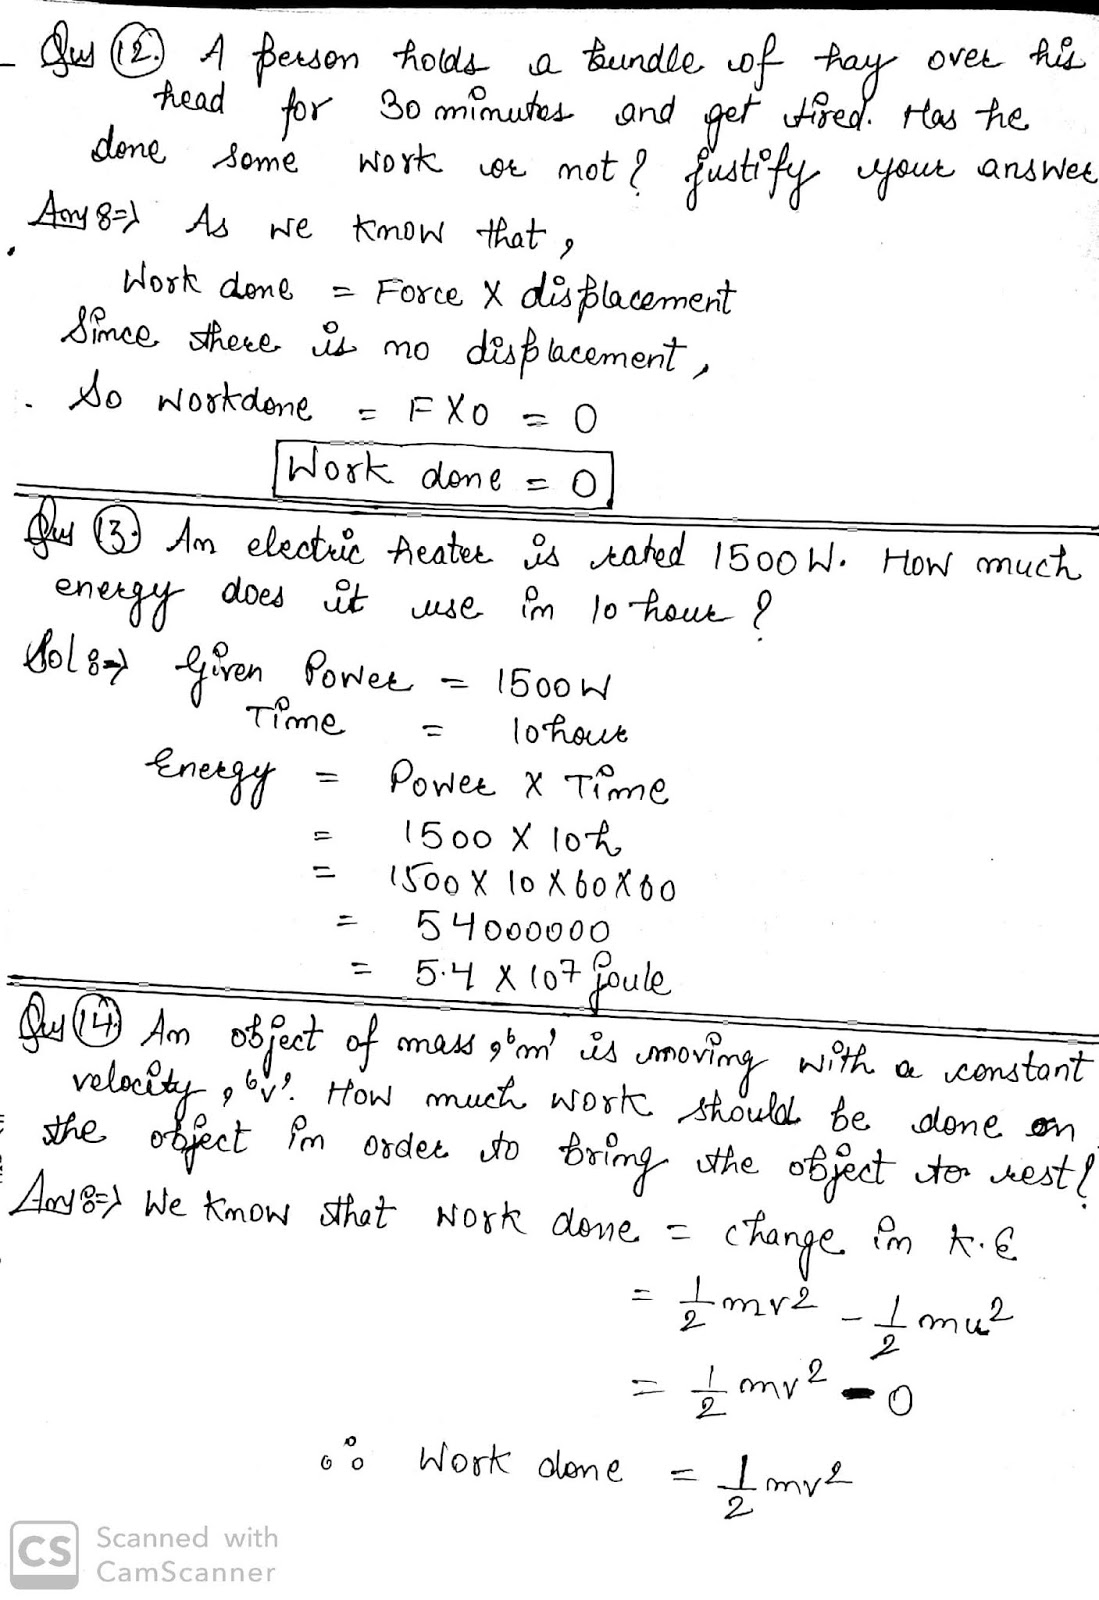 Ques 12. A person holds a bundle of hay over his
head for 30 minutes and get tired. Has he
done some work or not? Justify your answer
Ans :⇒ As we know that,
Work done = Force X displacement
Since there is no displacement,
So workdone = F X 0 = 0
Work done = 0
Ques 13. An electric heater is rated 1500 W. How much
energy does it use in 10 hour?
Sol :⇒ Given Power = 1500 W
Time = 10 hour
Energy = Power X Time
= 1500 X 10h
= 1500 X 10 X 60 X 60
= 54000000
= 5.4 X 10⁷ joule
Ques 14. An object of mass, 'm' is moving with a constant
velocity, 'v'. How much work should be done on
the object in order to bring the object to rest?
Ans :⇒ We know that work done = change in K.E
= 1/2 mv² - 1/2 mu²
= 1/2 mv² - 0
∴ Work done = 1/2 mv²
CS Scanned with
CamScanner